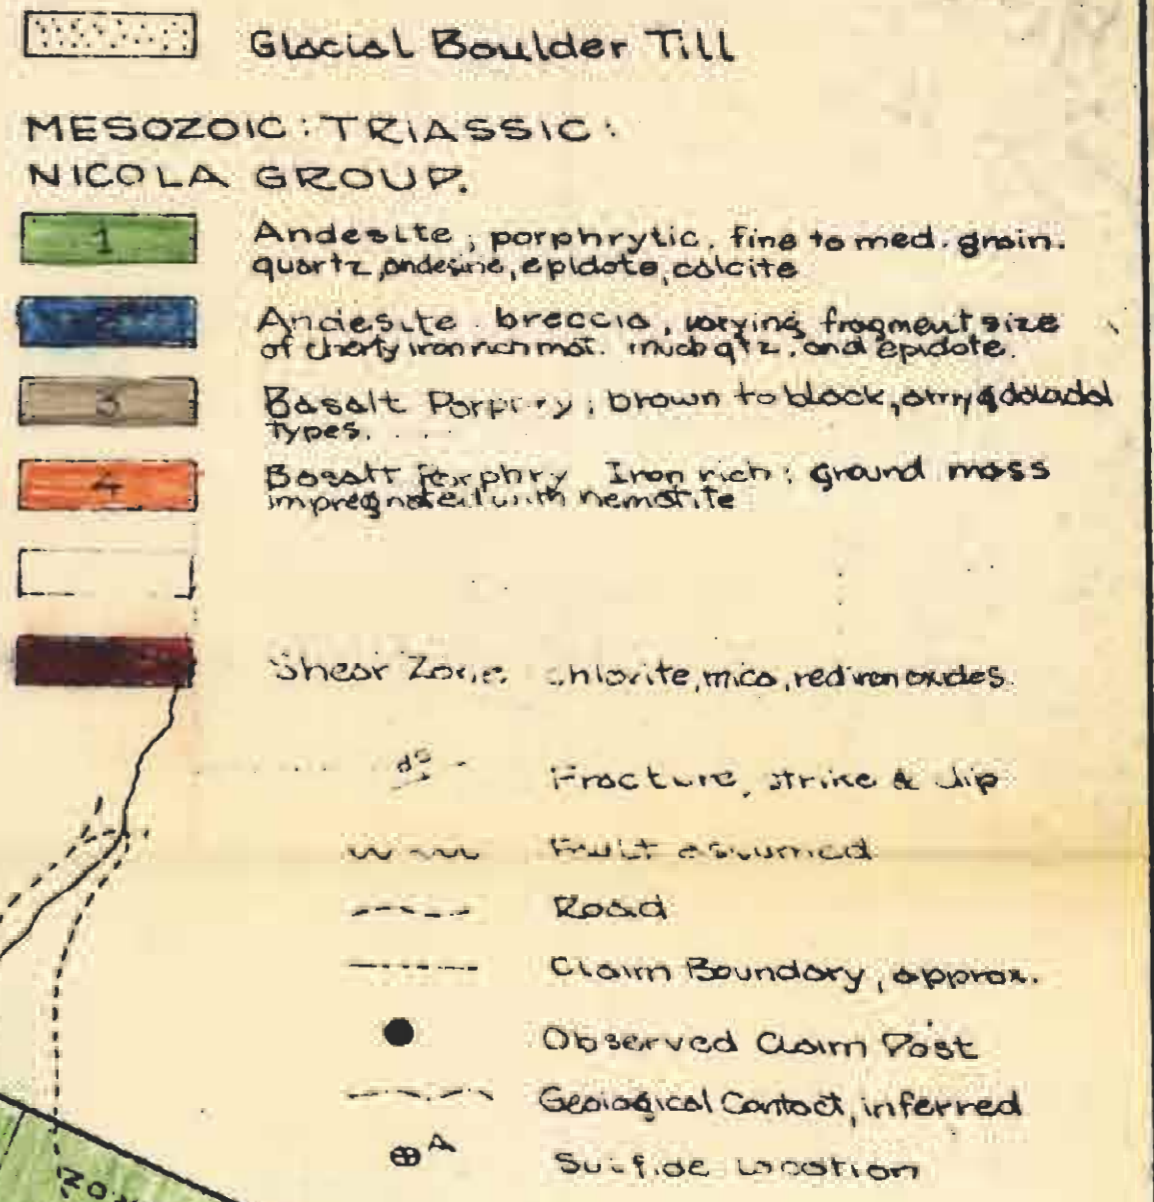 Glacial Boulder Till
MESOZOIC: TRIASSIC:
NICOLA GROUP.
1 Andesite; porphrytic. fine to med. grain.
quartz, andesine, epidote, calcite
2 Andesite breccia, varying fragment size
of cherty iron rich mat. much qtz. and epidote.
3 Basalt Porphry; brown to black, amygdaloidal
types.
4 Basalt Porphry Iron rich; ground mass
impregnated with hematite
Shear Zone. chlorite, mica, red iron oxides.
Fracture, strike & dip
Fault assumed
Road
Claim Boundary, approx.
Observed Claim Post
Geological Contact, inferred
A Sulfide Location